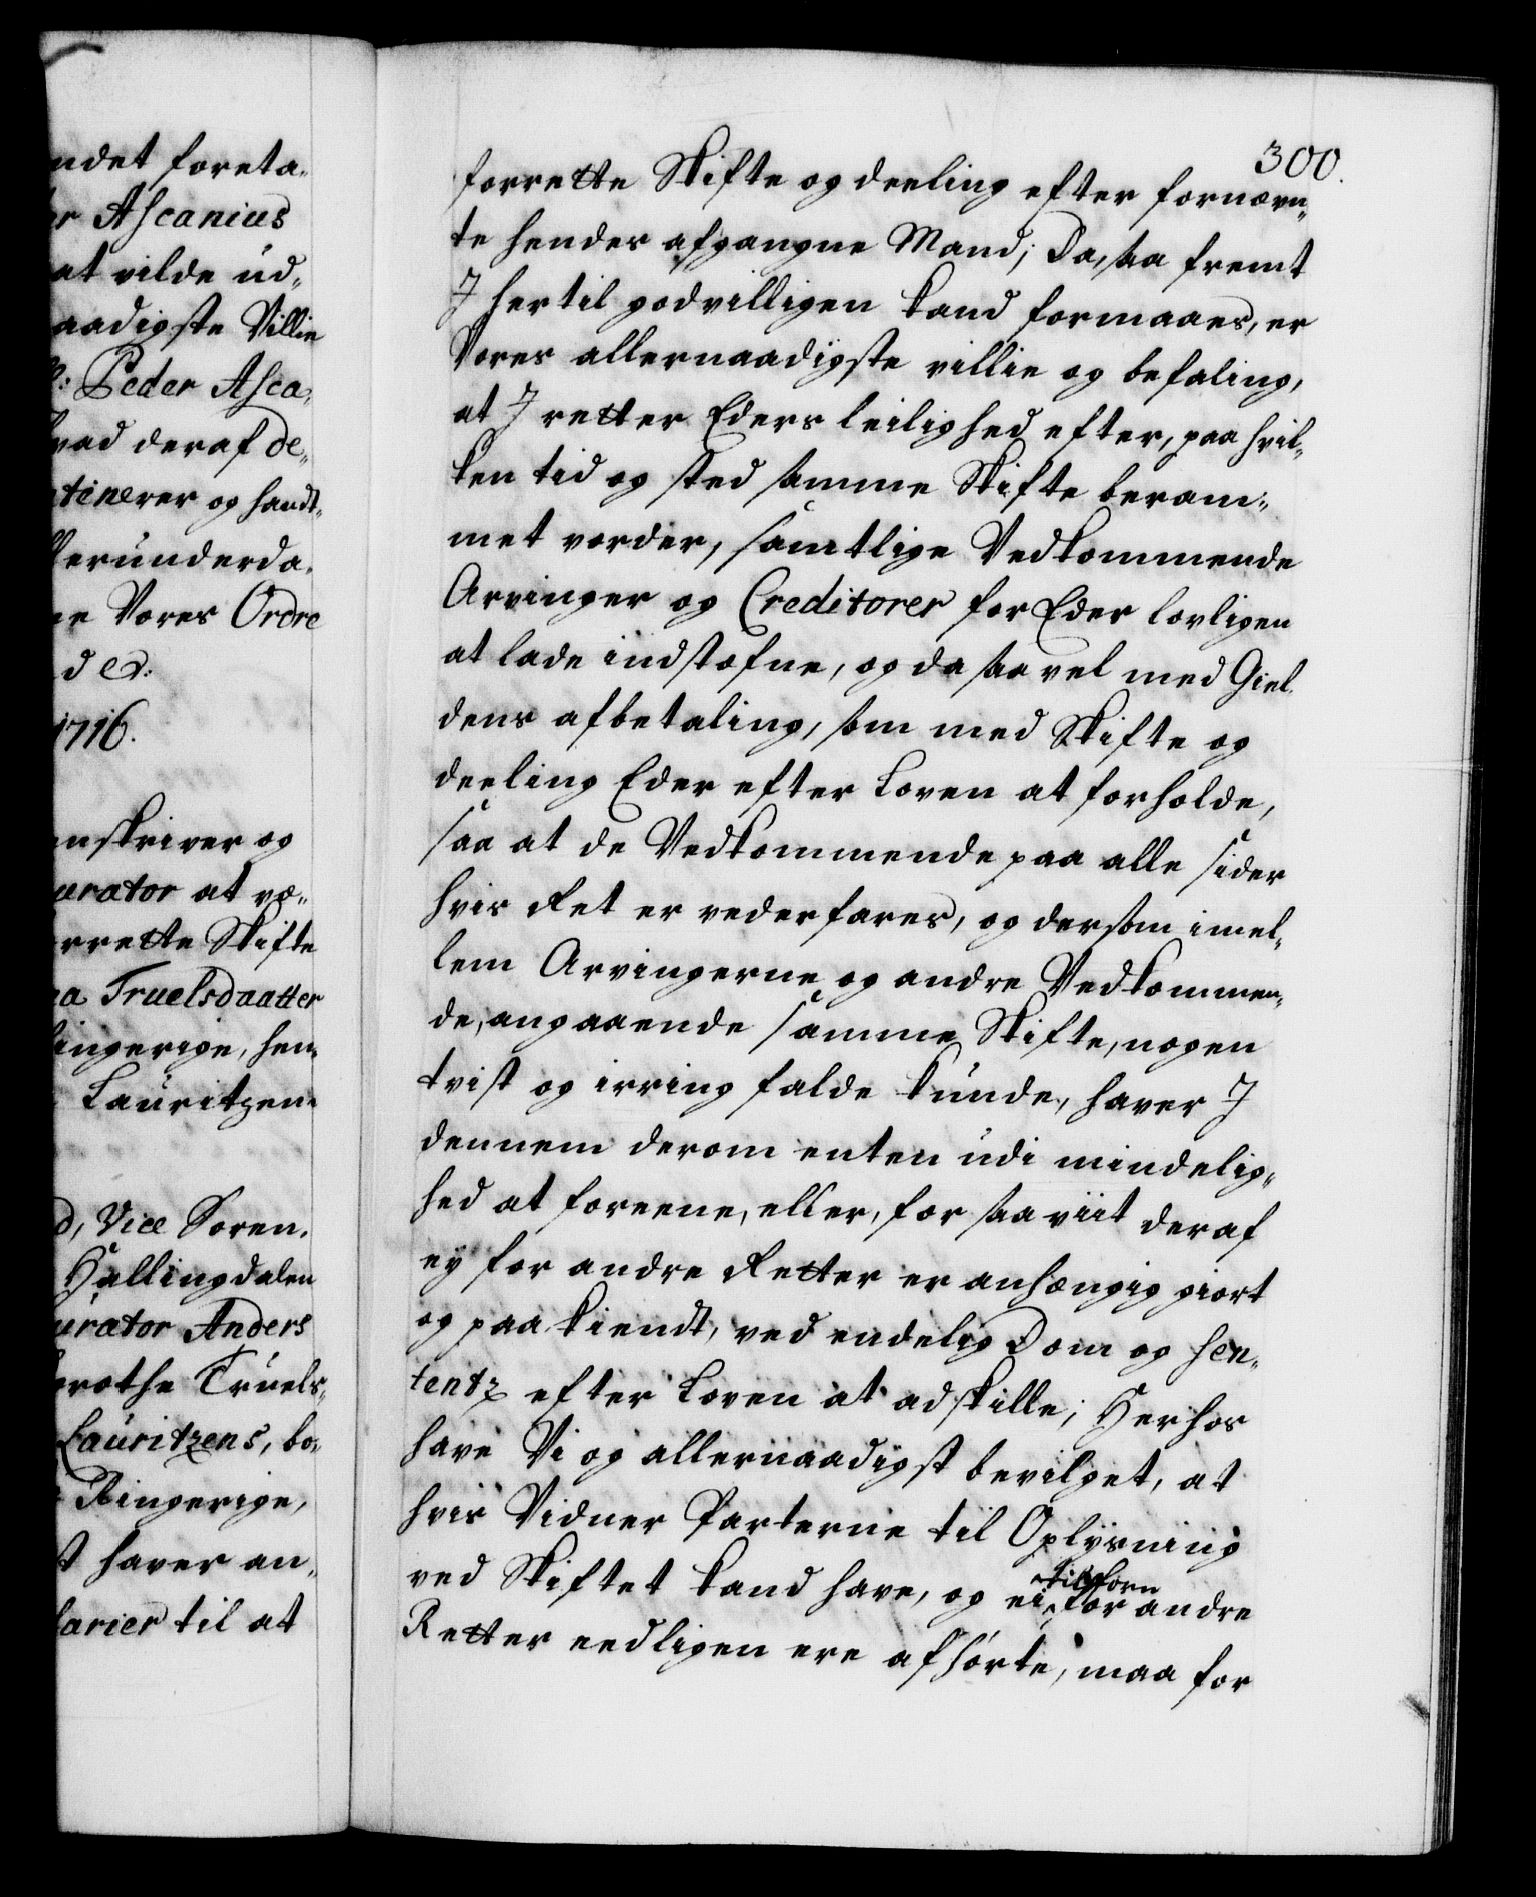 ndet foreta„
r Ascanius
at vilde ud„
aadigste Villie
Peder Asca„
vad deraf de„
tinerer og handt„
lerunderda„
ne Vores Ordre
d &:
1716.
nskriver og
urator at væ„
rrette Skifte
a Truelsdaatter
ingerige, hen„
Lauritzen„
d, Vice Soren„
Hallingdalen
urator Anders
rothe Truels„
Lauritzens, bo„
Ringerige,
haver an„
larier til at
300.
forrette Skifte og deeling efter fornævn„
te hendes afgangne Mand; Da, saa fremt
J hertil godvilligen kand formaaes, er
Vores allernaadigste villie og befaling,
at J retter Eders leilighed efter, paa hvil„
ken tid og sted samme Skifte beram„
met vorder, samtlige Vedkommende
Arvinger og Creditorer for Eder lovligen
at lade indstefne, og da saa vel med Giel„
dens afbetaling, som med Skifte og
deeling Eder efter Loven at forholde,
saa at de Vedkommende paa alle sider
hvis Ret er vederfares, og dersom imel„
lem Arvingerne og andre Vedkommen„
de, angaaende samme Skifte, nogen
tvist og irring falde kunde, haver J
dennem derom enten udi mindelig„
hed at foreene, eller, for saa viit deraf
ey for andre Retter er anhængig giort
og paa kiendt, ved endelig Dom og Sen„
tentz efter Loven at adskille; Herhos
have Vi og allernaadigst bevilget, at
hvis Vidner Parterne til Oplysning
ved Skiftet kand have, og ei tilforn for andre
Retter eedligen ere afhørte, maa for